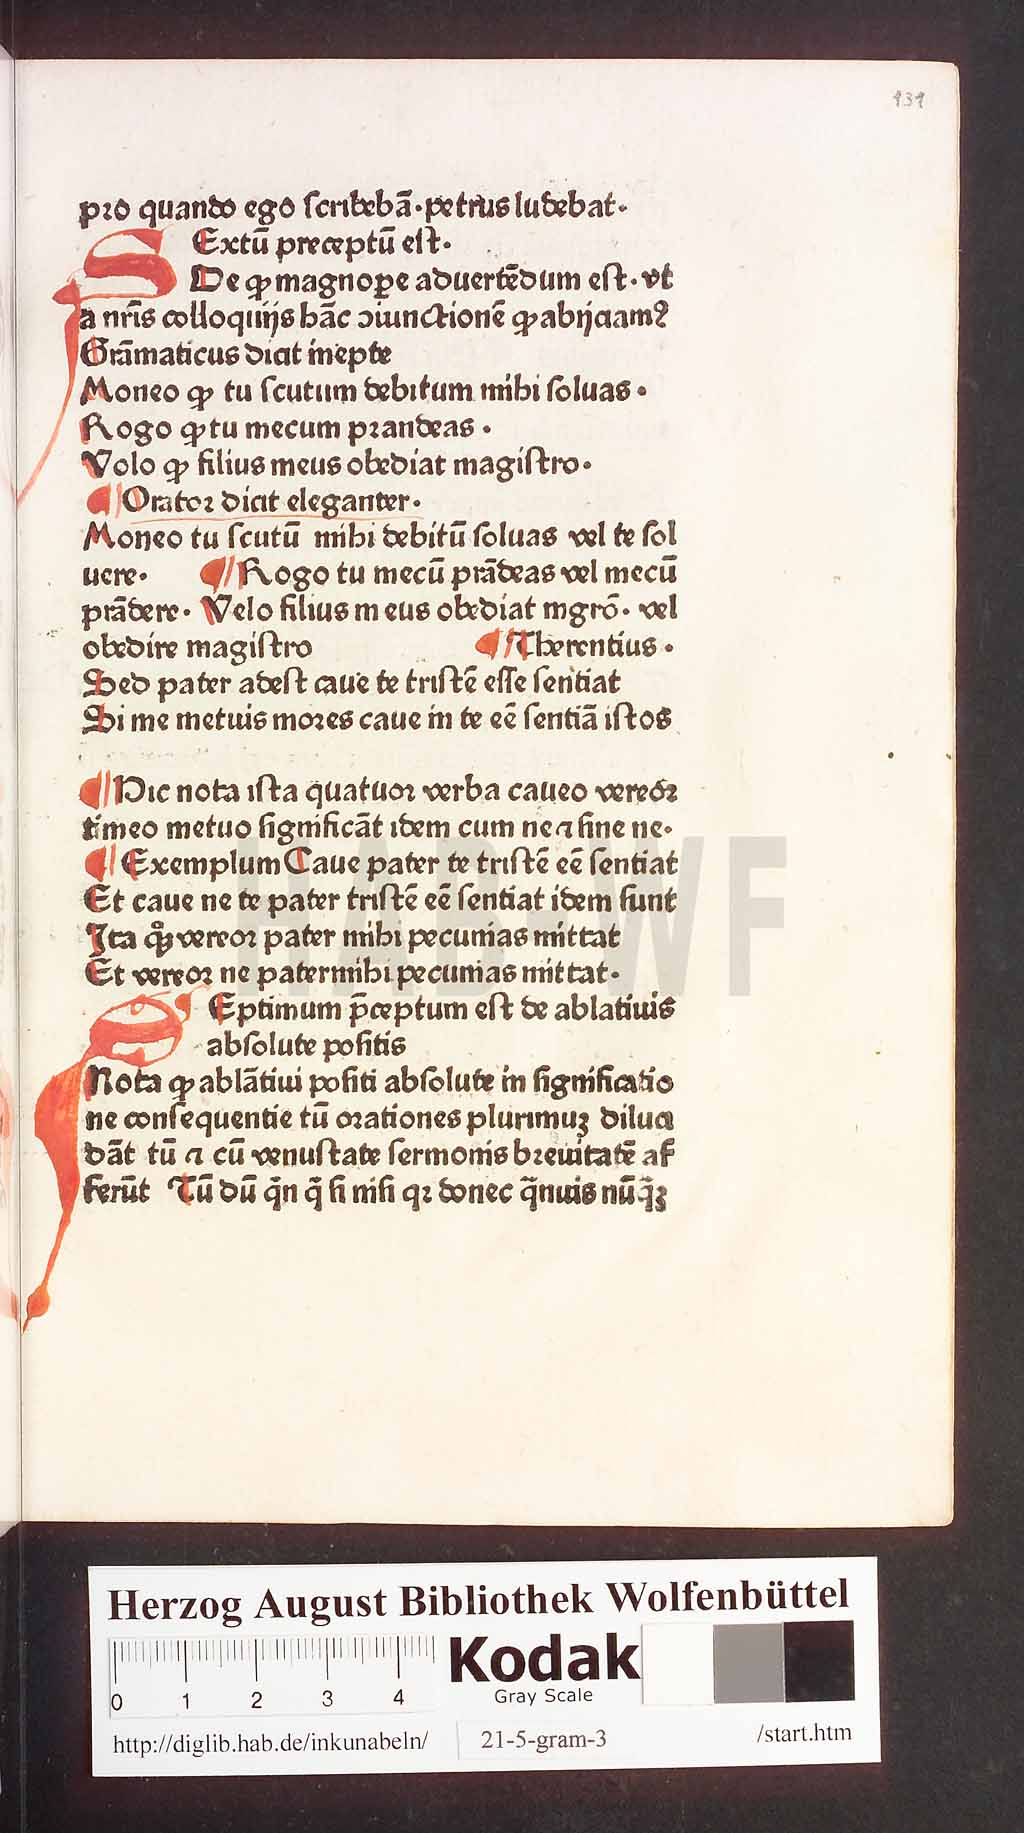 131
pro quando ego scribebā·petrus ludebat·
SExtū preceptū est·
De ꝙ magnoꝑe aduertēdum est·vt
a nr̄is colloquijs hāc ↄiunctionē ꝙ abijciam⁹
Grāmaticus dicit inepte
Moneo ꝙ tu scutum debitum mihi soluas·
Rogo ꝙ tu mecum prandeas·
Volo ꝙ filius meus obediat magistro·
¶ Orator dicit eleganter·
Moneo tu scutū mihi debitū soluas vel te sol
uere· ¶ Rogo tu mecū prādeas vel mecū
prādere· Velo filius m eus obediat mgrō· vel
obedire magistro ¶ Therentius·
Sed pater adest caue te tristē esse sentiat
Si me metuis mores caue in te eē sentiā istos
¶ Hic nota ista quatuor verba caueo vereor
timeo metuo significāt idem cum ne ⁊ sine ne·
¶ Exemplum Caue pater te tristē eē sentiat
Et caue ne te pater tristē eē sentiat idem sunt
Ita qͦꝫ vereor pater mihi pecunias mittat
Et vereor ne pater mihi pecunias mittat·
SEptimum p̄ceptum est de ablatiuis
absolute positis
Nota ꝙ ablātiui positi absolute in significatio
ne consequentie tū orationes plurimuꝫ diluci
dāt tū ⁊ cū venustate sermonis breuitatē af
ferūt Tū dū q̄n q̄ si nisi qr donec q̄nuis nūq̄ꝫ
HAB WF
Herzog August Bibliothek Wolfenbüttel
0 1 2 3 4
Kodak
Gray Scale
http://diglib.hab.de/inkunabeln/ 21-5-gram-3 /start.htm